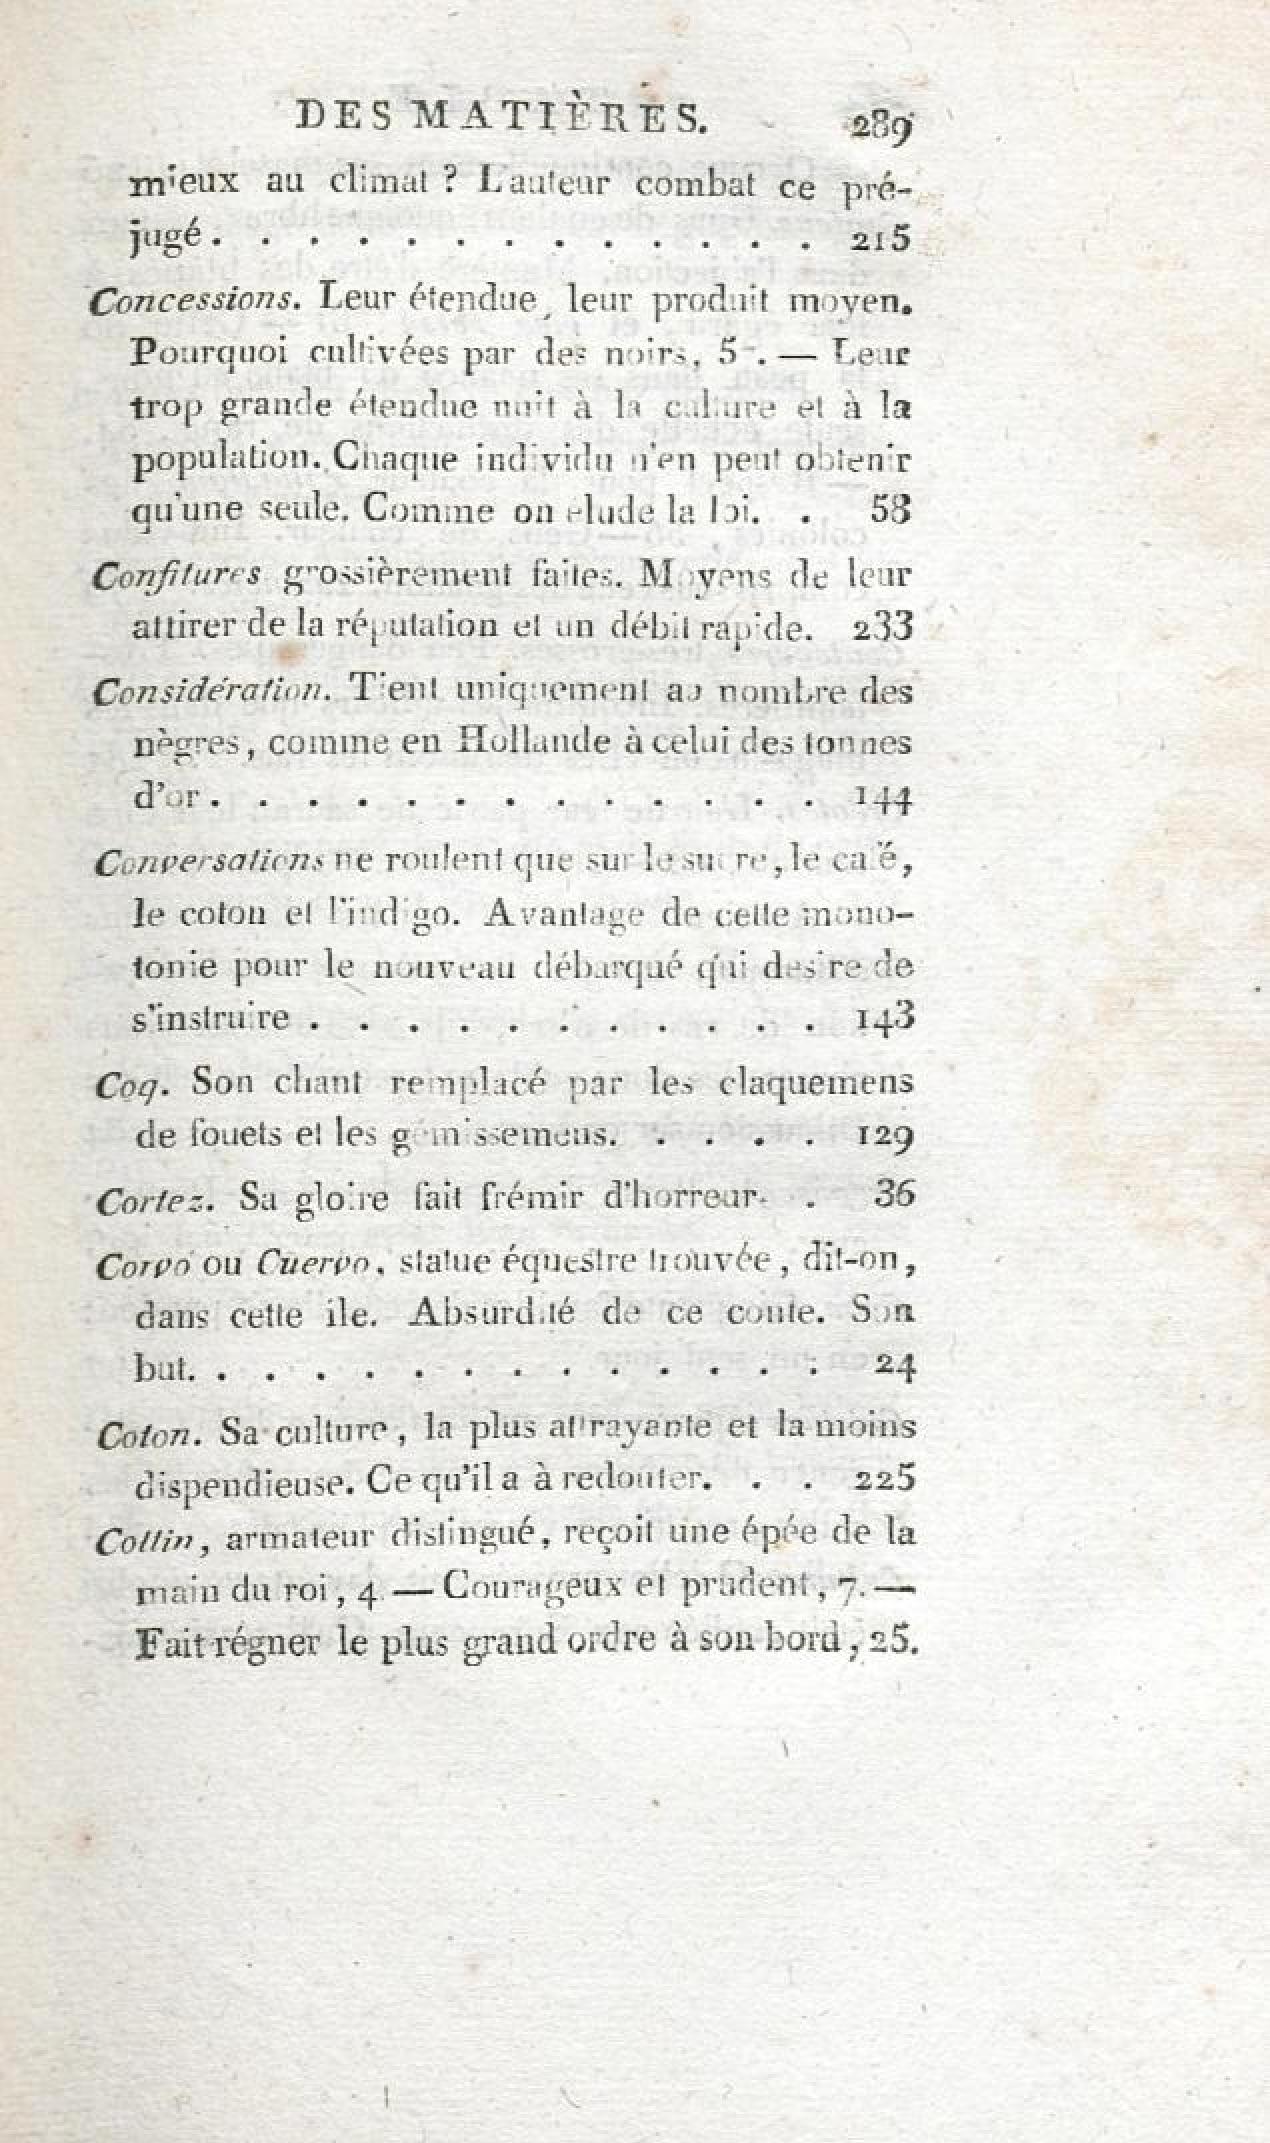 DES MATIÈRES. 289
mieux au climat ? L'auteur combat ce pré-
jugé . . . . . . . . . . . . . 215
Concessions. Leur étendue, leur produit moyen.
Pourquoi cultivées par des noirs, 5 . — Leur
trop grande étendue nuit à la culture et à la
population. Chaque individu n'en peut obtenir
qu'une seule. Comme on élude la loi. . 58
Confitures grossièrement faites. Moyens de leur
attirer de la réputation et un débit rapide. 233
Considération. Tient uniquement au nombre des
nègres, comme en Hollande à celui des tonnes
d'or . . . . . . . . . . . . . 144
Conversations ne roulent que sur le sucre, le café,
le coton et l'indigo. Avantage de cette mono-
tonie pour le nouveau débarqué qui desire de
s'instruire . . . . . . . . . . . 143
Coq. Son chant remplacé par les claquemens
de fouets et les gémissemens. . . . . 129
Cortez. Sa gloire fait frémir d'horreur. . 36
Corvo ou Cuervo, statue équestre trouvée, dit-on,
dans cette ile. Absurdité de ce conte. Son
but. . . . . . . . . . . . . . 24
Coton. Sa culture, la plus attrayante et la moins
dispendieuse. Ce qu'il a à redouter. . . 225
Cottin, armateur distingué, reçoit une épée de la
main du roi, 4. — Courageux et prudent, 7. —
Fait régner le plus grand ordre à son bord, 25.